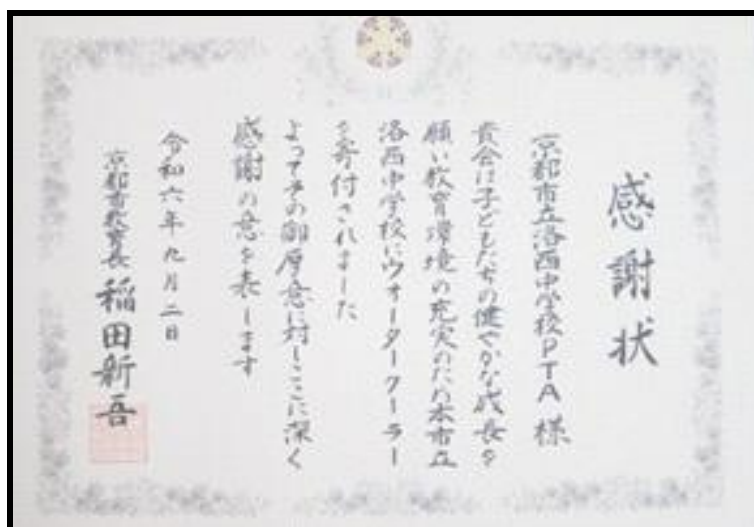 感謝状
京都市立洛西中学校PTA様
貴会は子どもたちの健やかな成長を
願い教育環境の充実のため本市立
洛西中学校にウォータークーラー
を寄付されました
よってその御厚意に対しここに深く
感謝の意を表します
令和六年九月二日
京都市教育長 稲田新吾